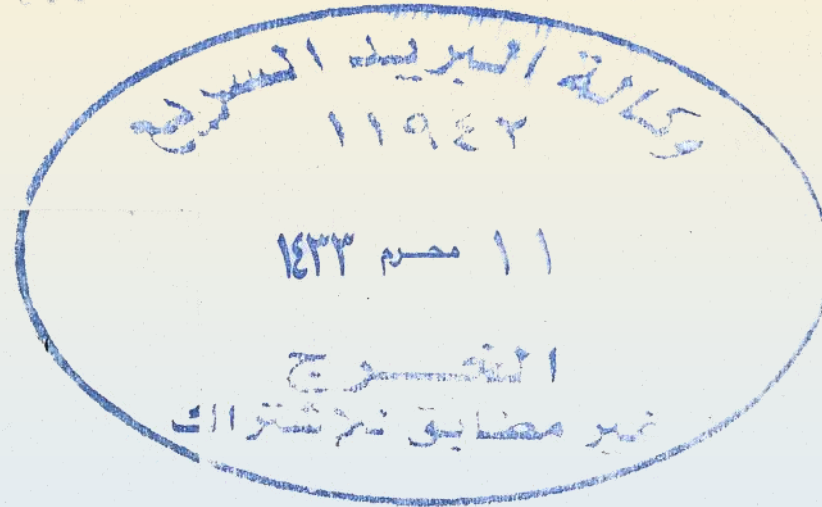 وكالة البريد السريع
١١٩٤٢
١١ محرم ١٤٣٣
الخرج
غير مطابق للاشتراك